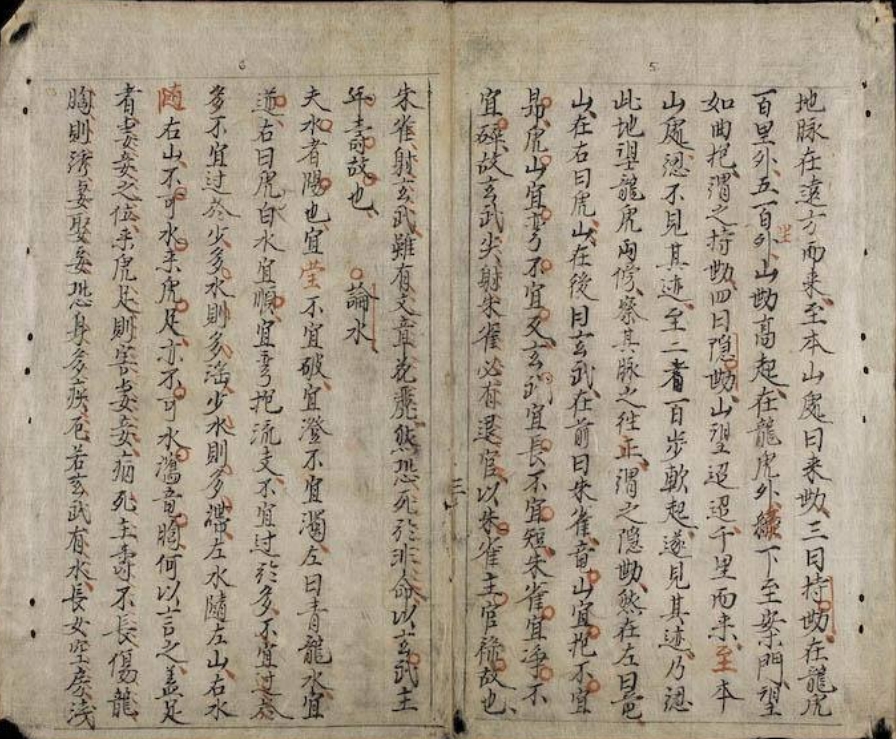 5
地脉在遠方而来至本山處曰来㔟三曰持㔟在龍虎
百里外五百外山㔟高起在龍虎外續下至案門望
如曲抱謂之持㔟四曰隐㔟山望迢迢千里而来至本
山處忽不見其迹至二者百步軟起遂見其迹乃忽
此地望龍虎両傍察其脉之往正謂之隐㔟然在左曰竜
山在右曰虎山在後曰玄武在前曰朱雀竜山宜抱不宜
昂虎山宜弯不宜叉玄武宜長不宜短朱雀宜净不
宜破故玄武尖射朱雀必有退官以朱雀主官祿故也
6
朱雀射玄武雖有文章花飛然恐死於非命以玄武主
年壽故也 論水
夫水者陽也宜瑩不宜破宜澄不宜濁左曰青龍水宜
逆右曰虎白水宜順宜弯抱流支不宜过於多不宜过於
多不宜过於少多水則多滛少水則多滯左水随左山右水
随右山不可水来虎足亦不可水濡竜胸何以言之盖足
者妻妾之位来虎足則害妻妾病死主壽不長傷龍
胸則孝妻娶妾恐身多疾厄若玄武有水長女空房淺